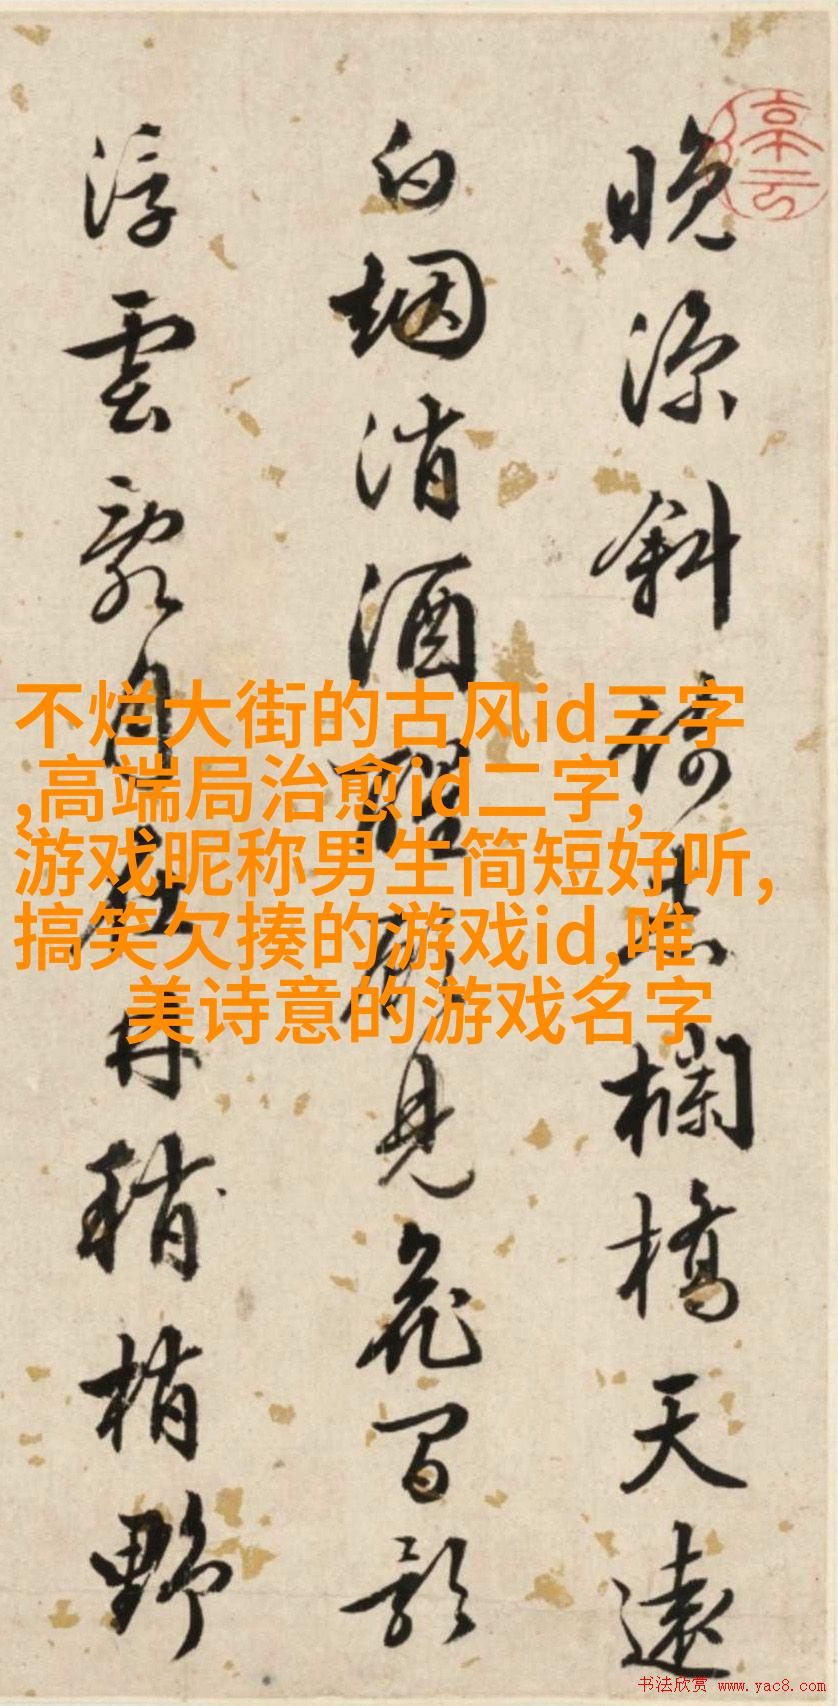 停云
晚涼斜倚赤欄橋天遠
白烟消酒醒見花間影
浮雲月在稍梢野
不烂大街的古风id三字
,高端局治愈id二字,
游戏昵称男生简短好听,
搞笑欠揍的游戏id,唯
美诗意的游戏名字
书法欣赏 www.yac8.com